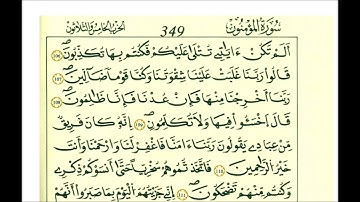 سورة المؤمنون 349 الحزب الخامس والثلاثون
ألم تكن ءايتي تتلى عليكم فكنتم بها تكذبون ١٠٥
قالوا ربنا غلبت علينا شقوتنا وكنا قوما ضآلين ١٠٦
ربنآ أخرجنا منها فإن عدنا فإنا ظلمون ١٠٧
قال اخسـٔوا فيها ولا تكلمون ١٠٨ إنه كان فريق
من عبادي يقولون ربنآ ءامنا فاغفر لنا وارحمنا وأنت
خير الرحمين ١٠٩ فاتخذتموهم سخريا حتى أنسوكم ذكري
وكنتم منهم تضحكون ١١٠ إني جزيتهم اليوم بما صبروا أنهم